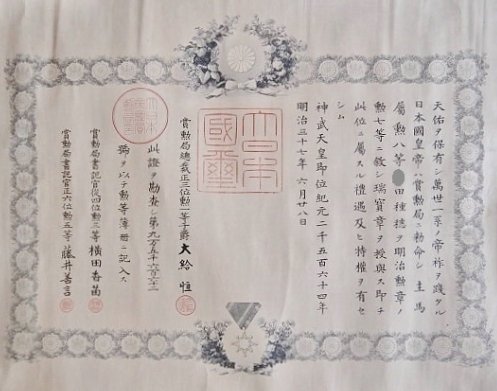 天佑ヲ保有シ萬世一系ノ帝祚ヲ踐タル
日本國皇帝ハ賞勲局ニ勅命シ主馬
屬勲八等 田種徳ヲ明治勲章ノ
勲七等ニ敘シ瑞寶章ヲ授與ス即チ
此位ニ屬スル禮遇及ヒ特權ヲ有セ
シム
神武天皇即位紀元二千五百六十四年
明治三十七年 六月廿八日
大日本
國璽
賞勲局總裁正三位勲一等子爵大給恒
此證ヲ勘査シ第九万五千
號ヲ以テ勲等簿冊ニ記入ス
賞勲局書記官從四位勲三等横田香苗
賞勲局書記官正六位勲五等藤井善言